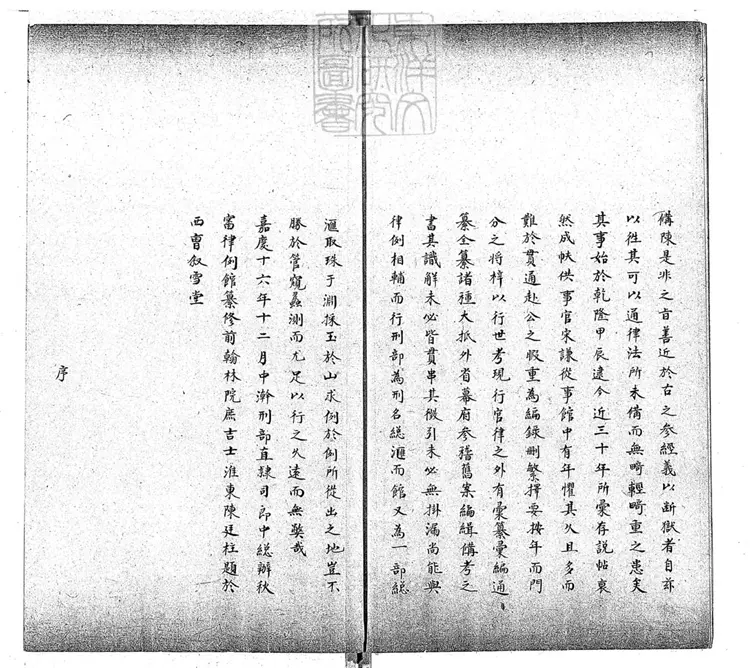 備陳是非之旨善近於古之參經義以斷獄者自茲
以徃其可以通律法所未備而無畸輕畸重之患矣
其事始於乾隆甲辰逮今近三十年所彙存説帖裒
然成帙供事官宋謙從事館中有年懼其久且多而
難於貫通赴公之暇重為編錄刪繁擇要按年而門
分之將梓以行世考現行官律之外有彙纂彙編通
纂全纂諸種大抵外省幕府參稽舊案編緝備考之
書其識解未必皆貫串其徵引未必無掛漏尚能與
律例相輔而行刑部為刑名総滙而館又為一部総
滙取珠于淵採玉於山求例於例所從出之地豈不
勝於管窺蠡測而尤足以行之久遠而無獘哉
嘉慶十六年十二月中澣刑部直隷司郎中総辦秋
審律例館纂修前翰林院庶吉士淮東陳廷柱題於
西曺叙雪堂
序
東洋文
化研究
所圖書